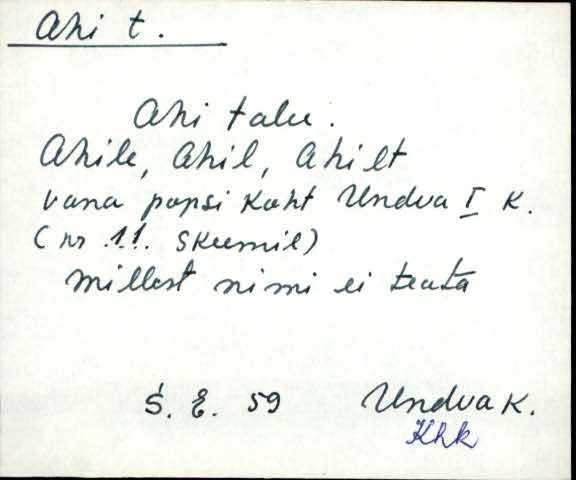 Ahi t.
Ahi talu.
Ahile, Ahil, Ahilt
vana popsi koht Undva I k.
(nr. 11. skeemil)
millest nimi ei teata
S. E. 59 Undva k.
Khk